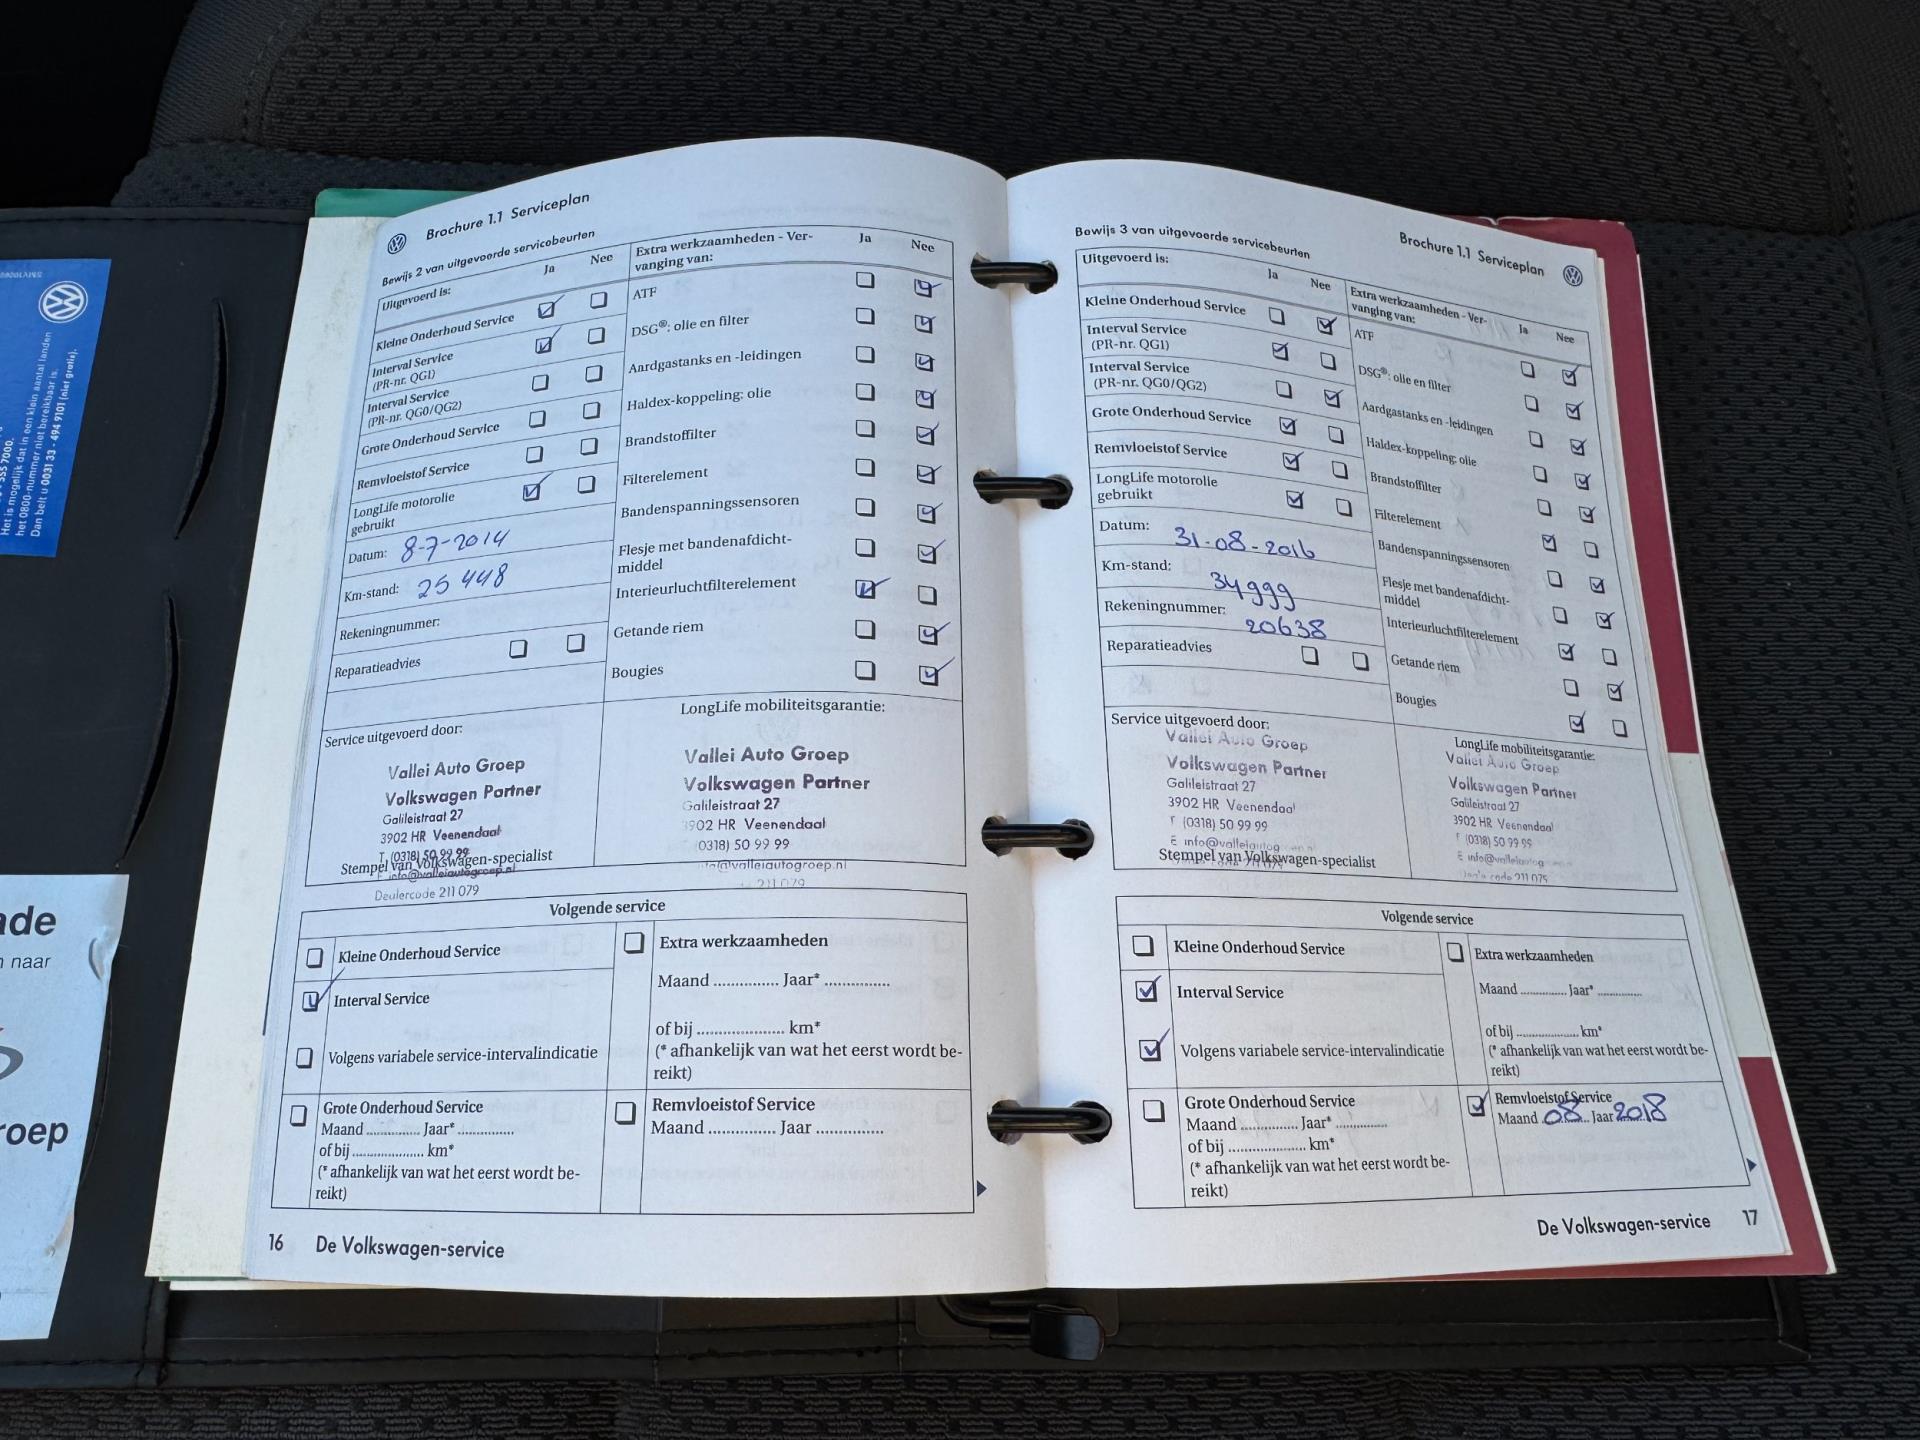 Brochure 1.1 Serviceplan
Bewijs 2 van uitgevoerde servicebeurten
Uitgevoerd is: Ja Nee
Kleine Onderhoud Service
Interval Service
(PR-nr. QG1)
Interval Service
(PR-nr. QG0/QG2)
Grote Onderhoud Service
Remvloeistof Service
LongLife motorolie
gebruikt
Datum: 8-7-2014
Km-stand: 25 448
Rekeningnummer:
Reparatieadvies
Extra werkzaamheden - Ver-
vanging van: Ja Nee
ATF
DSG®: olie en filter
Aardgastanks en -leidingen
Haldex-koppeling: olie
Brandstoffilter
Filterelement
Bandenspanningssensoren
Flesje met bandenafdicht-
middel
Interieurluchtfilterelement
Getande riem
Bougies
Service uitgevoerd door:
Vallei Auto Groep
Volkswagen Partner
Galileistraat 27
3902 HR Veenendaal
T (0318) 50 99 99
E info@valleiautogroep.nl
Stempel van Volkswagen-specialist
Dealercode 211 079
LongLife mobiliteitsgarantie:
Vallei Auto Groep
Volkswagen Partner
Galileistraat 27
3902 HR Veenendaal
(0318) 50 99 99
211 079
Volgende service
Kleine Onderhoud Service
Interval Service
Volgens variabele service-intervalindicatie
Grote Onderhoud Service
Maand ............... Jaar* ...............
of bij .................... km*
(* afhankelijk van wat het eerst wordt be-
reikt)
Extra werkzaamheden
Maand ............... Jaar* ...............
of bij .................... km*
(* afhankelijk van wat het eerst wordt be-
reikt)
Remvloeistof Service
Maand ............... Jaar ...............
16 De Volkswagen-service
Brochure 1.1 Serviceplan
Bewijs 3 van uitgevoerde servicebeurten
Uitgevoerd is: Ja Nee
Kleine Onderhoud Service
Interval Service
(PR-nr. QG1)
Interval Service
(PR-nr. QG0/QG2)
Grote Onderhoud Service
Remvloeistof Service
LongLife motorolie
gebruikt
Datum: 31-08-2016
Km-stand: 34999
Rekeningnummer: 20638
Reparatieadvies
Extra werkzaamheden - Ver-
vanging van: Ja Nee
ATF
DSG®: olie en filter
Aardgastanks en -leidingen
Haldex-koppeling: olie
Brandstoffilter
Filterelement
Bandenspanningssensoren
Flesje met bandenafdicht-
middel
Interieurluchtfilterelement
Getande riem
Bougies
Service uitgevoerd door:
Vallei Auto Groep
Volkswagen Partner
Galileistraat 27
3902 HR Veenendaal
T (0318) 50 99 99
E info@valleiautog
Stempel van Volkswagen-specialist
LongLife mobiliteitsgarantie:
Vallei Auto Groep
Volkswagen Partner
Galileistraat 27
3902 HR Veenendaal
(0318) 50 99 99
E info@valleiautog
Volgende service
Kleine Onderhoud Service
Interval Service
Volgens variabele service-intervalindicatie
Grote Onderhoud Service
Maand ............... Jaar* ...............
of bij .................... km*
(* afhankelijk van wat het eerst wordt be-
reikt)
Extra werkzaamheden
Maand ............... Jaar* ...............
of bij .................... km*
(* afhankelijk van wat het eerst wordt be-
reikt)
Remvloeistof Service
Maand 08 Jaar 2018
De Volkswagen-service 17
555 7000.
Het is mogelijk dat in een klein aantal landen
het 0800-nummer niet bereikbaar is.
Dan belt u 0031 33 - 494 9101 (niet gratis).
ade
naar
roep